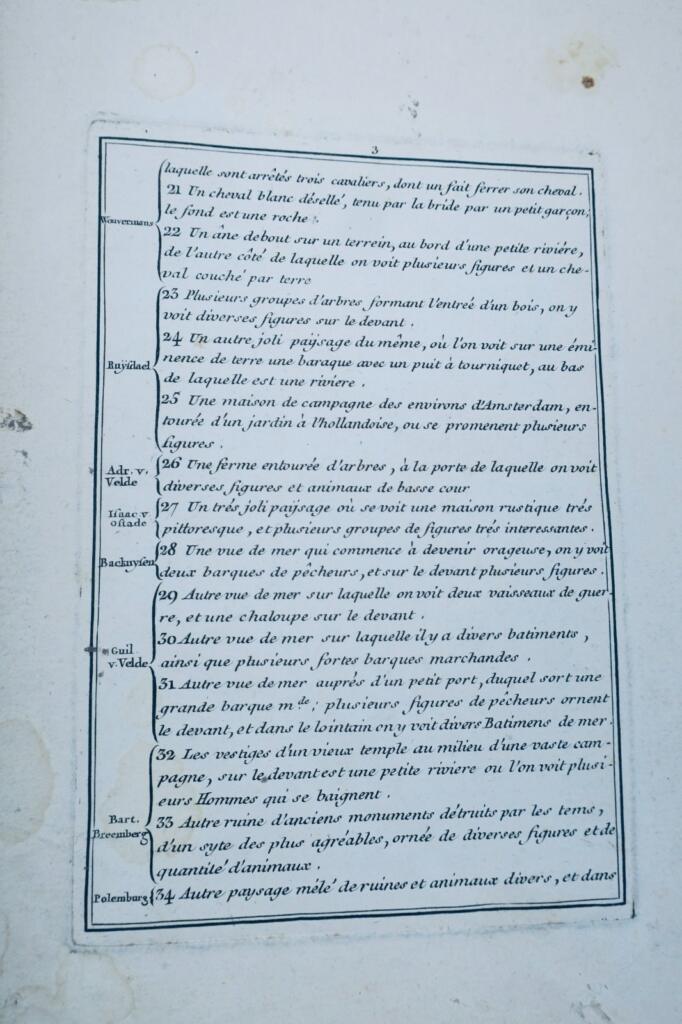 3
laquelle sont arrêtés trois cavaliers, dont un fait ferrer son cheval.
21 Un cheval blanc désellé, tenu par la bride par un petit garçon;
le fond est une roche.
Wouvermans
22 Un âne debout sur un terrein, au bord d'une petite riviére,
de l'autre côté de laquelle on voit plusieurs figures et un che-
val couché par terre
23 Plusieurs groupes d'arbres formant l'entreé d'un bois, on y
voit diverses figures sur le devant.
24 Un autre joli païsage du même, où l'on voit sur une émi-
nence de terre une baraque avec un puit à tourniquet, au bas
Ruysdael
de laquelle est une riviere.
25 Une maison de campagne des environs d'Amsterdam, en-
tourée d'un jardin à l'hollandoise, ou se promenent plusieurs
figures.
Adr. v.
Velde
26 Une ferme entourée d'arbres, à la porte de laquelle on voit
diverses figures et animaux de basse cour
Isaac v
ostade
27 Un trés joli païsage où se voit une maison rustique trés
pittoresque, et plusieurs groupes de figures trés interessantes.
Backuysen
28 Une vue de mer qui commence à devenir orageuse, on y voit
deux barques de pêcheurs, et sur le devant plusieurs figures.
29 Autre vue de mer sur laquelle on voit deux vaisseaux de guer-
re, et une chaloupe sur le devant.
Guil
v. Velde
30 Autre vue de mer sur laquelle il y a divers batiments,
ainsi que plusieurs fortes barques marchandes.
31 Autre vue de mer auprés d'un petit port, duquel sort une
grande barque m.de; plusieurs figures de pêcheurs ornent
le devant, et dans le lointain on y voit divers Batimens de mer.
32 Les vestiges d'un vieux temple au milieu d'une vaste cam-
pagne, sur le devant est une petite riviere ou l'on voit plusi-
eurs Hommes qui se baignent.
Bart.
Breemberg
33 Autre ruine d'anciens monuments détruits par les tems,
d'un syte des plus agréables, ornée de diverses figures et de
quantité d'animaux.
Polemburg
34 Autre paysage mêlé de ruines et animaux divers, et dans